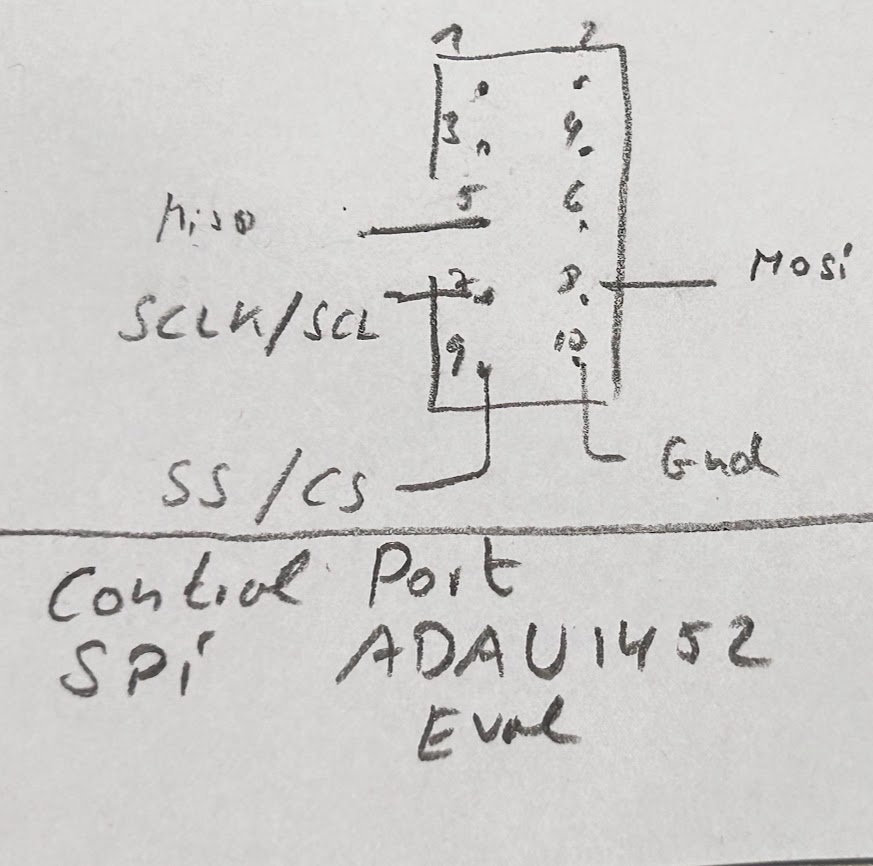 1 2
3 4
5 6
Miso
7 8
Mosi
SCLK/SCL
9 10
Gnd
SS/CS
Control Port
SPi ADAU1452
Eval